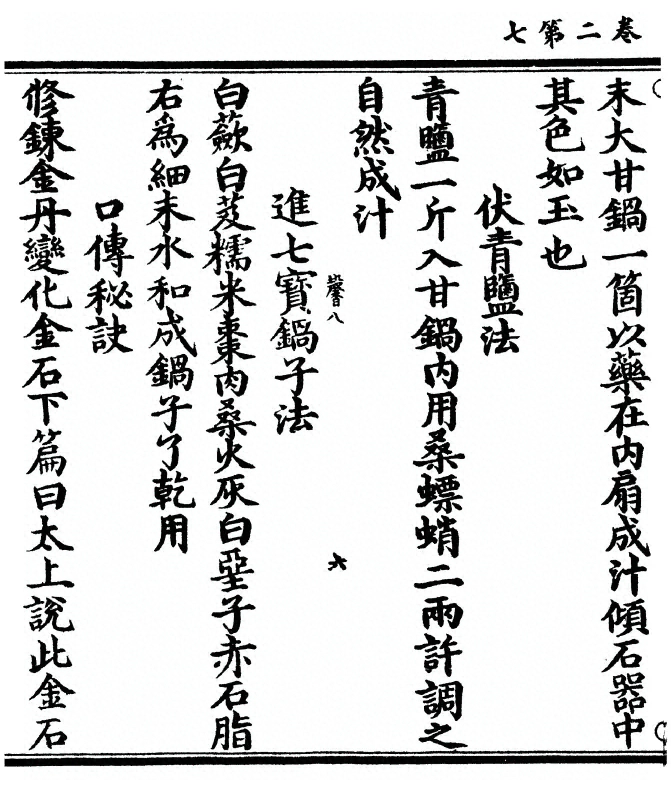 卷二第七
末大甘鍋一箇以藥在内扇成汁傾石器中
其色如玉也
伏青鹽法
青鹽一斤入甘鍋内用桑螵蛸二兩許調之
自然成汁
六
進七寶鍋子法
白蘞白芨糯米棗肉桑火灰白堊子赤石脂
右爲細末水和成鍋子了乾用
口傳秘訣
修鍊金丹變化金石下篇曰太上說此金石